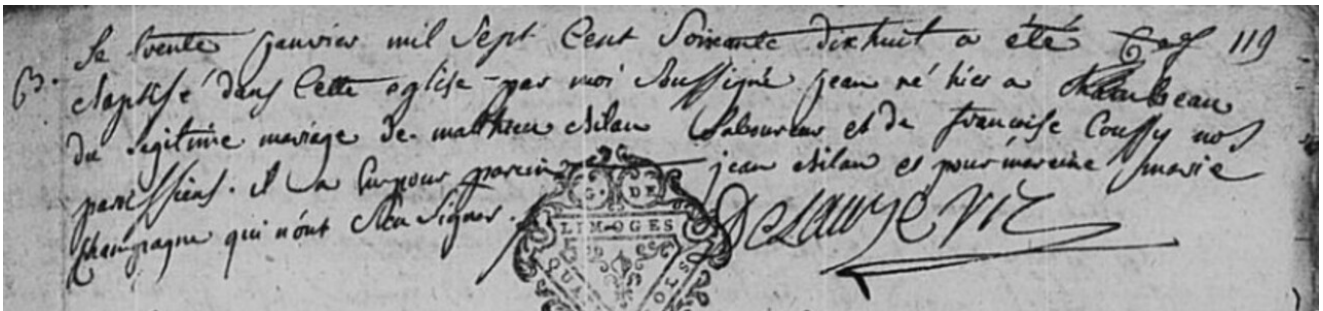 Le trente janvier mil sept cent soixante dixhuit a été 119
B. baptisé dans cette eglise par moi soussigné jean né hier a
du legitime mariage de mathieu laboureur et de francoise Coussy nos
paroissiens. il a eu pour parein jean et pour mareine marie
champagne qui n'ont sceu signer. Delauze vic
G. DE
LIMOGES
QUA OLS